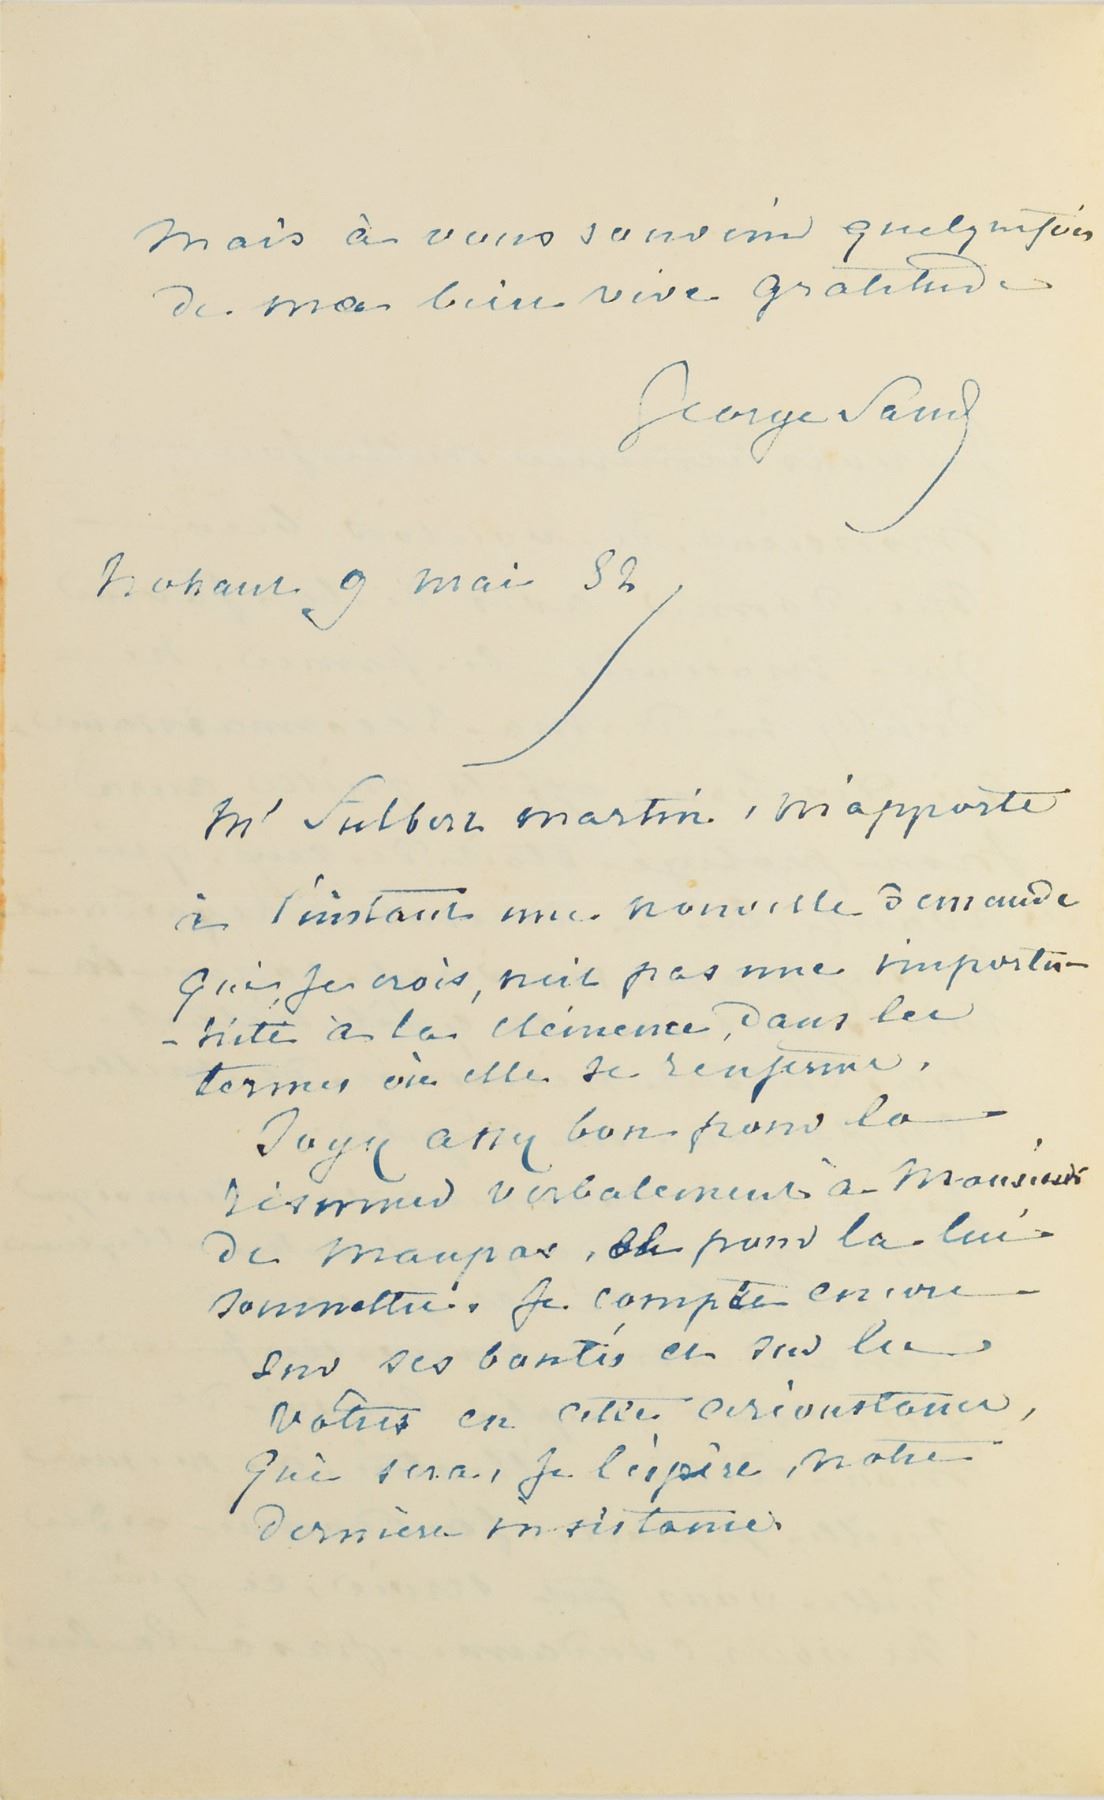 mais à vous souvenir quelquefois
de ma bien vive gratitude
George Sand
Nohant 9 mai 52
Mr Fulbert Martin, m'apporte
à l'instant une nouvelle demande
qui, je crois, n'est pas une importu-
-nité à la clémence, dans les
termes où elle se renferme.
Soyez assez bon pour la
résumer verbalement à Monsieur
de Maupas, et pour la lui
soumettre. Je compte encore
sur ses bontés et sur les
vôtres en cette circonstance,
qui sera, je l'espère, notre
dernière insistance.